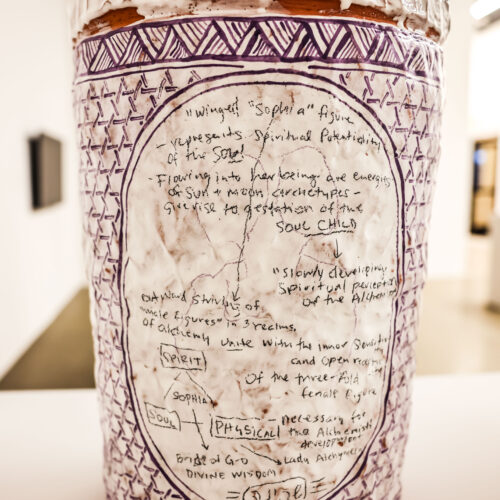 "Winged "Sophia" figure
- represents Spiritual Potentiality
of the Soul
- Flowing into her being are energies
of Sun + moon archetypes -
Give rise to gestation of the
SOUL CHILD
"Slowly developing
Spiritual perception
of the Alchemist
Outward Striving of
"male figures" in 3 realms
of Alchemy Unite with the inner Sensitivity
and open
SPIRIT
of the three-Fold
female figure
SOPHIA
SOUL
PHYSICAL - necessary for
the Alchemist's
development
Bride of G-D
Lady
DIVINE WISDOM